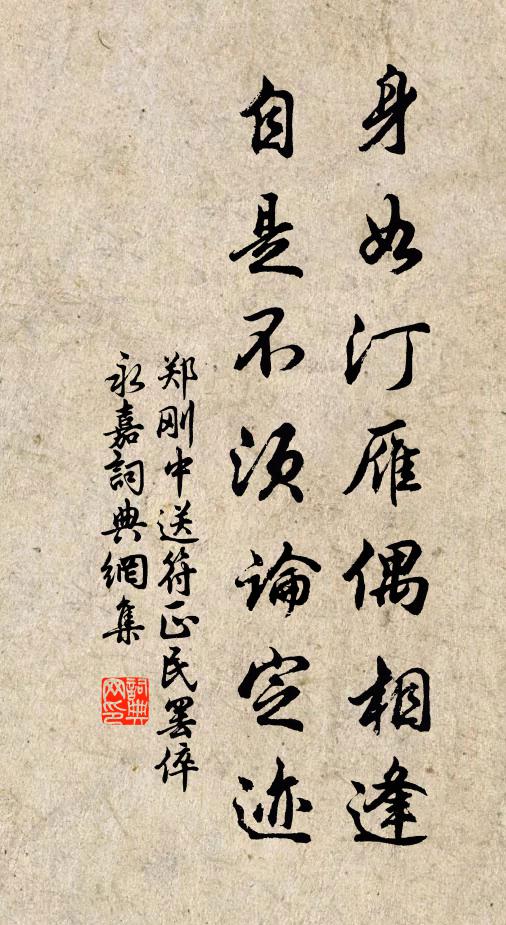 身如汀雁偶相逢
自是不须論定迹
郑刚中送符正民罢倅
永嘉詞典網集
詞典网印